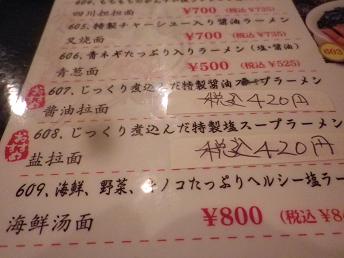 四川担担面 ¥700 (税込¥735)
605、特製チャーシュー入り醤油ラーメン
叉烧面 ¥700 (税込¥735)
606、青ネギたっぷり入りラーメン(塩・醤油)
青葱面 ¥500 (税込¥525)
607、じっくり煮込んだ特製醤油スープラーメン
酱油拉面 税込420円
608、じっくり煮込んだ特製塩スープラーメン
盐拉面 税込420円
609、海鮮、野菜、キノコたっぷりヘルシー塩ラ
海鲜汤面 ¥800 (税込¥8
おすすめ
603